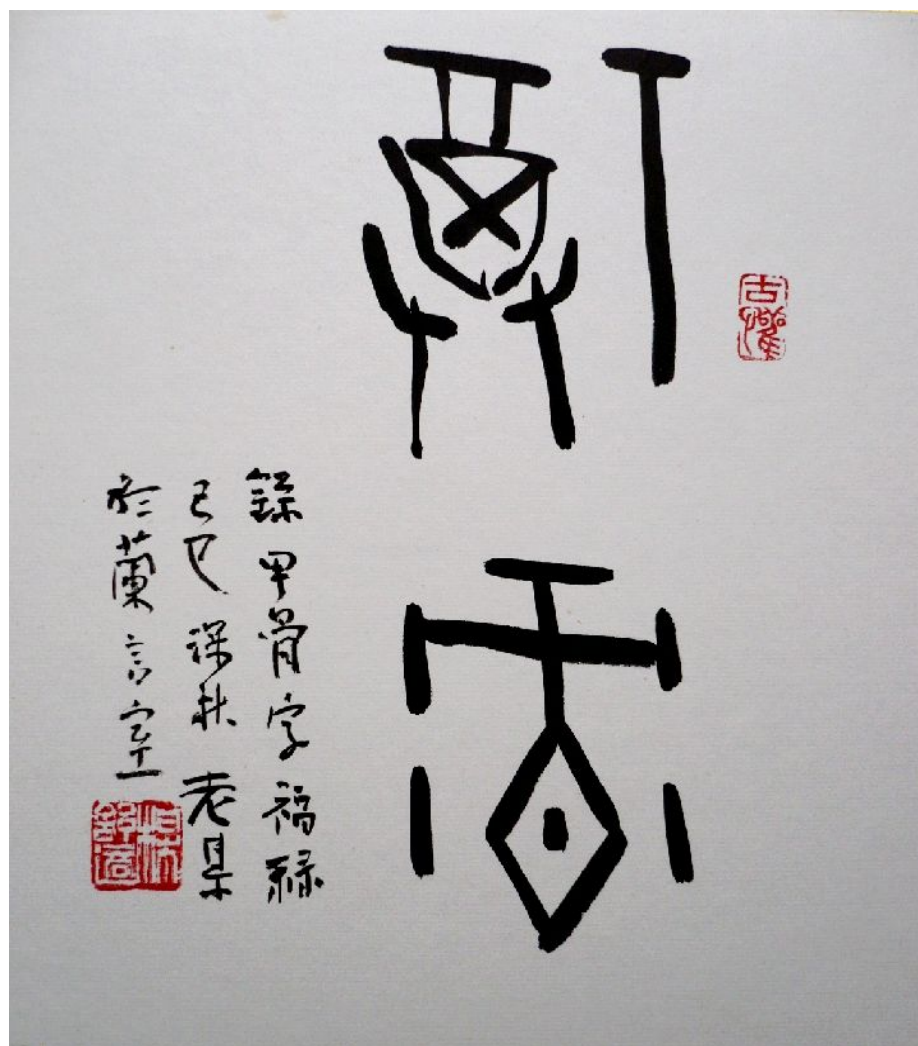 福
祿
錄甲骨字福祿
己巳深秋老杲
於蘭言室